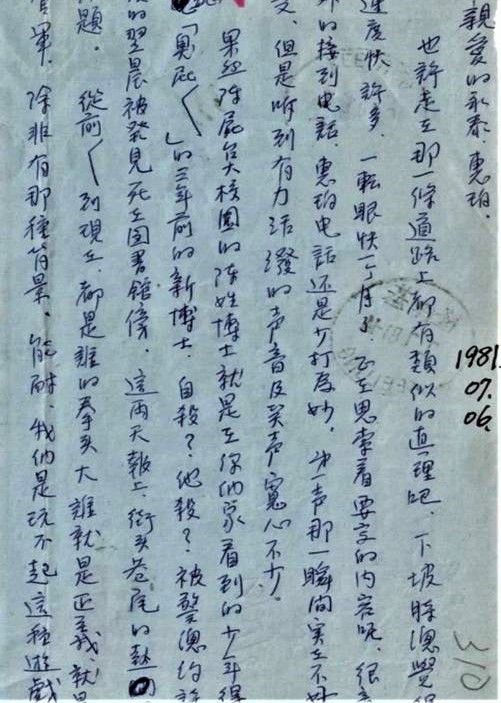 親愛的永泰、惠珀、
也許走在那一條道路上都有類似的道理吧、下坡時總覺得
速度快許多、一転眼快一个月了、正在思索着要写的内容呢、很意
外的接到电話、惠珀电話还是少打為妙、才一声那一瞬间实在不妙
受、但是听到有力活潑的声音及笑声寬心不少、
果然陈屍台大校園的陈姓博士就是在你们家看到的少年得
「臭屁ㄟ」的三年前的新博士、自殺？他殺？被警總約談
的翌晨被発見死在圖書館傍、這兩天報上、街头巷尾的
題、從前ㄟ到現在、都是誰的拳头大誰就是正義、就是
除非有那種背景、能耐、我們是玩不起這種遊戲
1981.
07.
06.
310